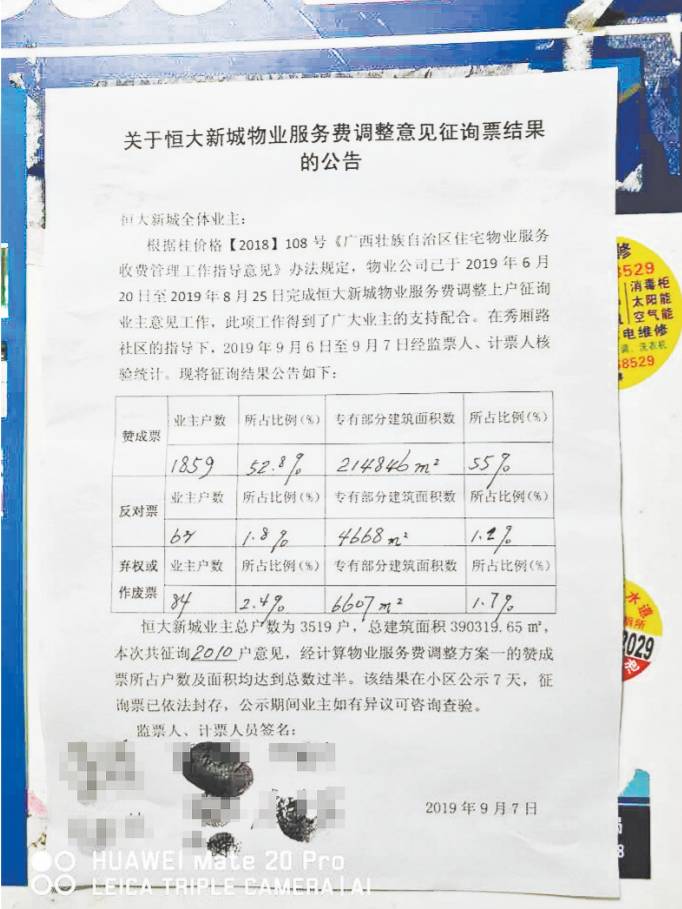 关于恒大新城物业服务费调整意见征询票结果
的公告
恒大新城全体业主：
根据桂价格【2018】108号《广西壮族自治区住宅物业服务
收费管理工作指导意见》办法规定，物业公司已于2019年6月
20日至2019年8月25日完成恒大新城物业服务费调整上户征询
业主意见工作，此项工作得到了广大业主的支持配合。在秀厢路
社区的指导下，2019年9月6日至9月7日经监票人、计票人核
验统计。现将征询结果公告如下：
赞成票 业主户数 所占比例(%) 专有部分建筑面积数 所占比例(%)
1859 52.8% 214846m² 55%
反对票 业主户数 所占比例(%) 专有部分建筑面积数 所占比例(%)
67 1.8% 4668m² 1.2%
弃权或作废票 业主户数 所占比例(%) 专有部分建筑面积数 所占比例(%)
84 2.4% 6607m² 1.7%
恒大新城业主总户数为3519户，总建筑面积390319.65㎡，
本次共征询2010户意见，经计算物业服务费调整方案一的赞成
票所占户数及面积均达到总数过半。该结果在小区公示7天，征
询票已依法封存，公示期间业主如有异议可咨询查验。
监票人、计票人员签名：
2019年9月7日
修
8529
消毒柜
太阳能
空气能
电维修
洗衣机
8529
水通
厕所
029
池
8
HUAWEI Mate 20 Pro
LEICA TRIPLE CAMERA | AI